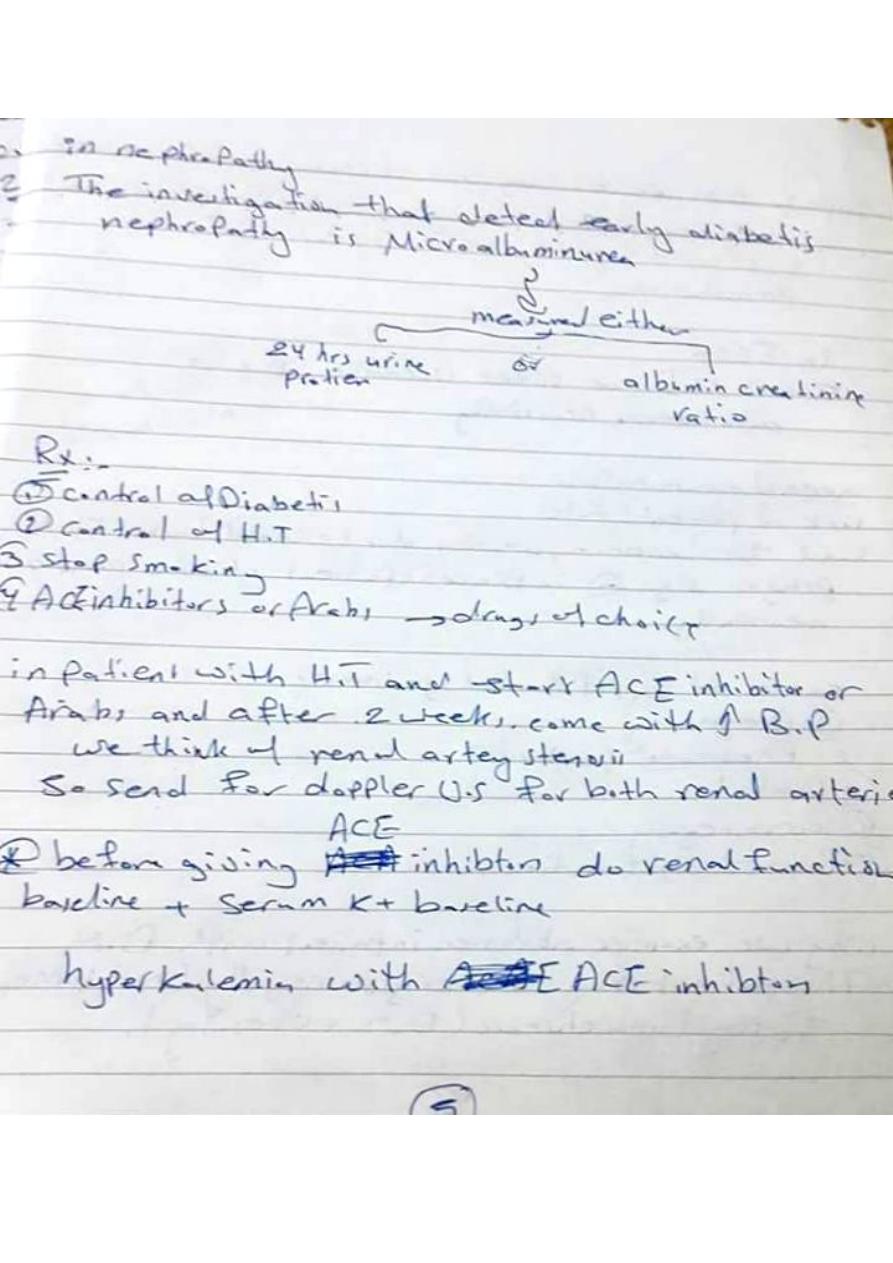 in nephropathy
2 The investigation that detect early diabetis
nephropathy is Microalbuminurea
measured either
24 hrs urine
protien
or
albumin creatinine
ratio
Rx:-
① control of Diabetis
② control of H.T
3 stop smoking
4 ACE inhibitors or Arabs → drugs of choice
in patient with H.T and start ACE inhibitor or
Arabs and after 2 weeks come with ↑ B.P
we think of renal artey stenosis
So send for doppler U.S for both renal arterie
ACE
* before giving inhibtors do renal function
baseline + serum K+ baseline
hyperkalemia with ACE inhibtors
5